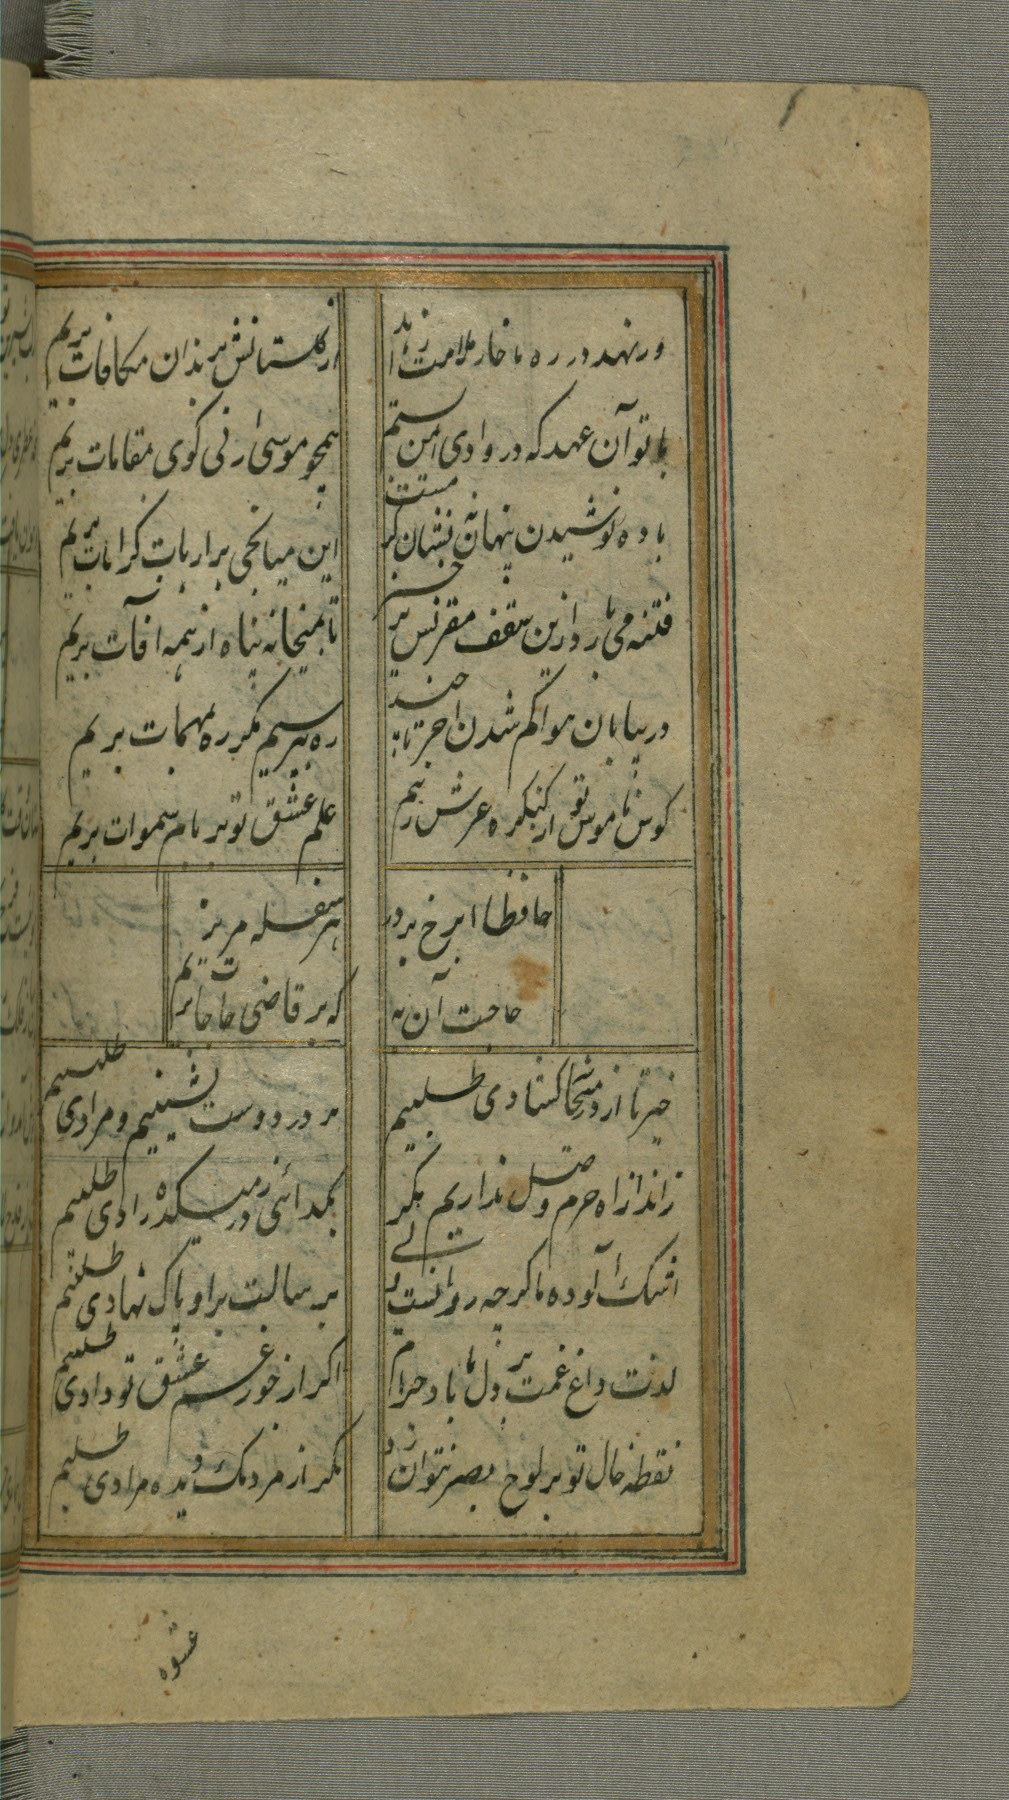 ور نهد در ره ما خار ملامت زاهد
از گلستانش بزندان مکافات بریم
با تو آن عهد که در وادی ایمن بستیم
همچو موسی ارنی گوی بمقامات بریم
باده نوشیدن پنهان نه نشان کرمست
این میانجی بر ارباب کرامات بریم
فتنه می بارد ازین سقف مقرنس برخیز
تا بمیخانه پناه از همه آفات بریم
در بیابان هوا گم شدن آخر تا چند
ره بپرسیم مگر ره بمهمات بریم
کوس ناموس تو از کنگره عرش زنیم
علم عشق تو بر بام سموات بریم
حافظا آب رخ بر در
هر سفله مریز
حاجت آن به
که بر قاضی حاجات بریم
خیز تا از در میخانه گشادی طلبیم
بر در دوست نشینیم و مرادی طلبیم
زاد راه حرم وصل نداریم مگر
بگدائی ز در میکده زادی طلبیم
اشک آلوده ما گرچه روانست ولی
برسالت بر او پاک نهادی طلبیم
لذت داغ غمت بر دل ما باد حرام
اگر از جور غم عشق تو دادی طلبیم
نقطه خال تو بر لوح بصر نتوان زد
مگر از مردمک دیده مرادی طلبیم
عشوه